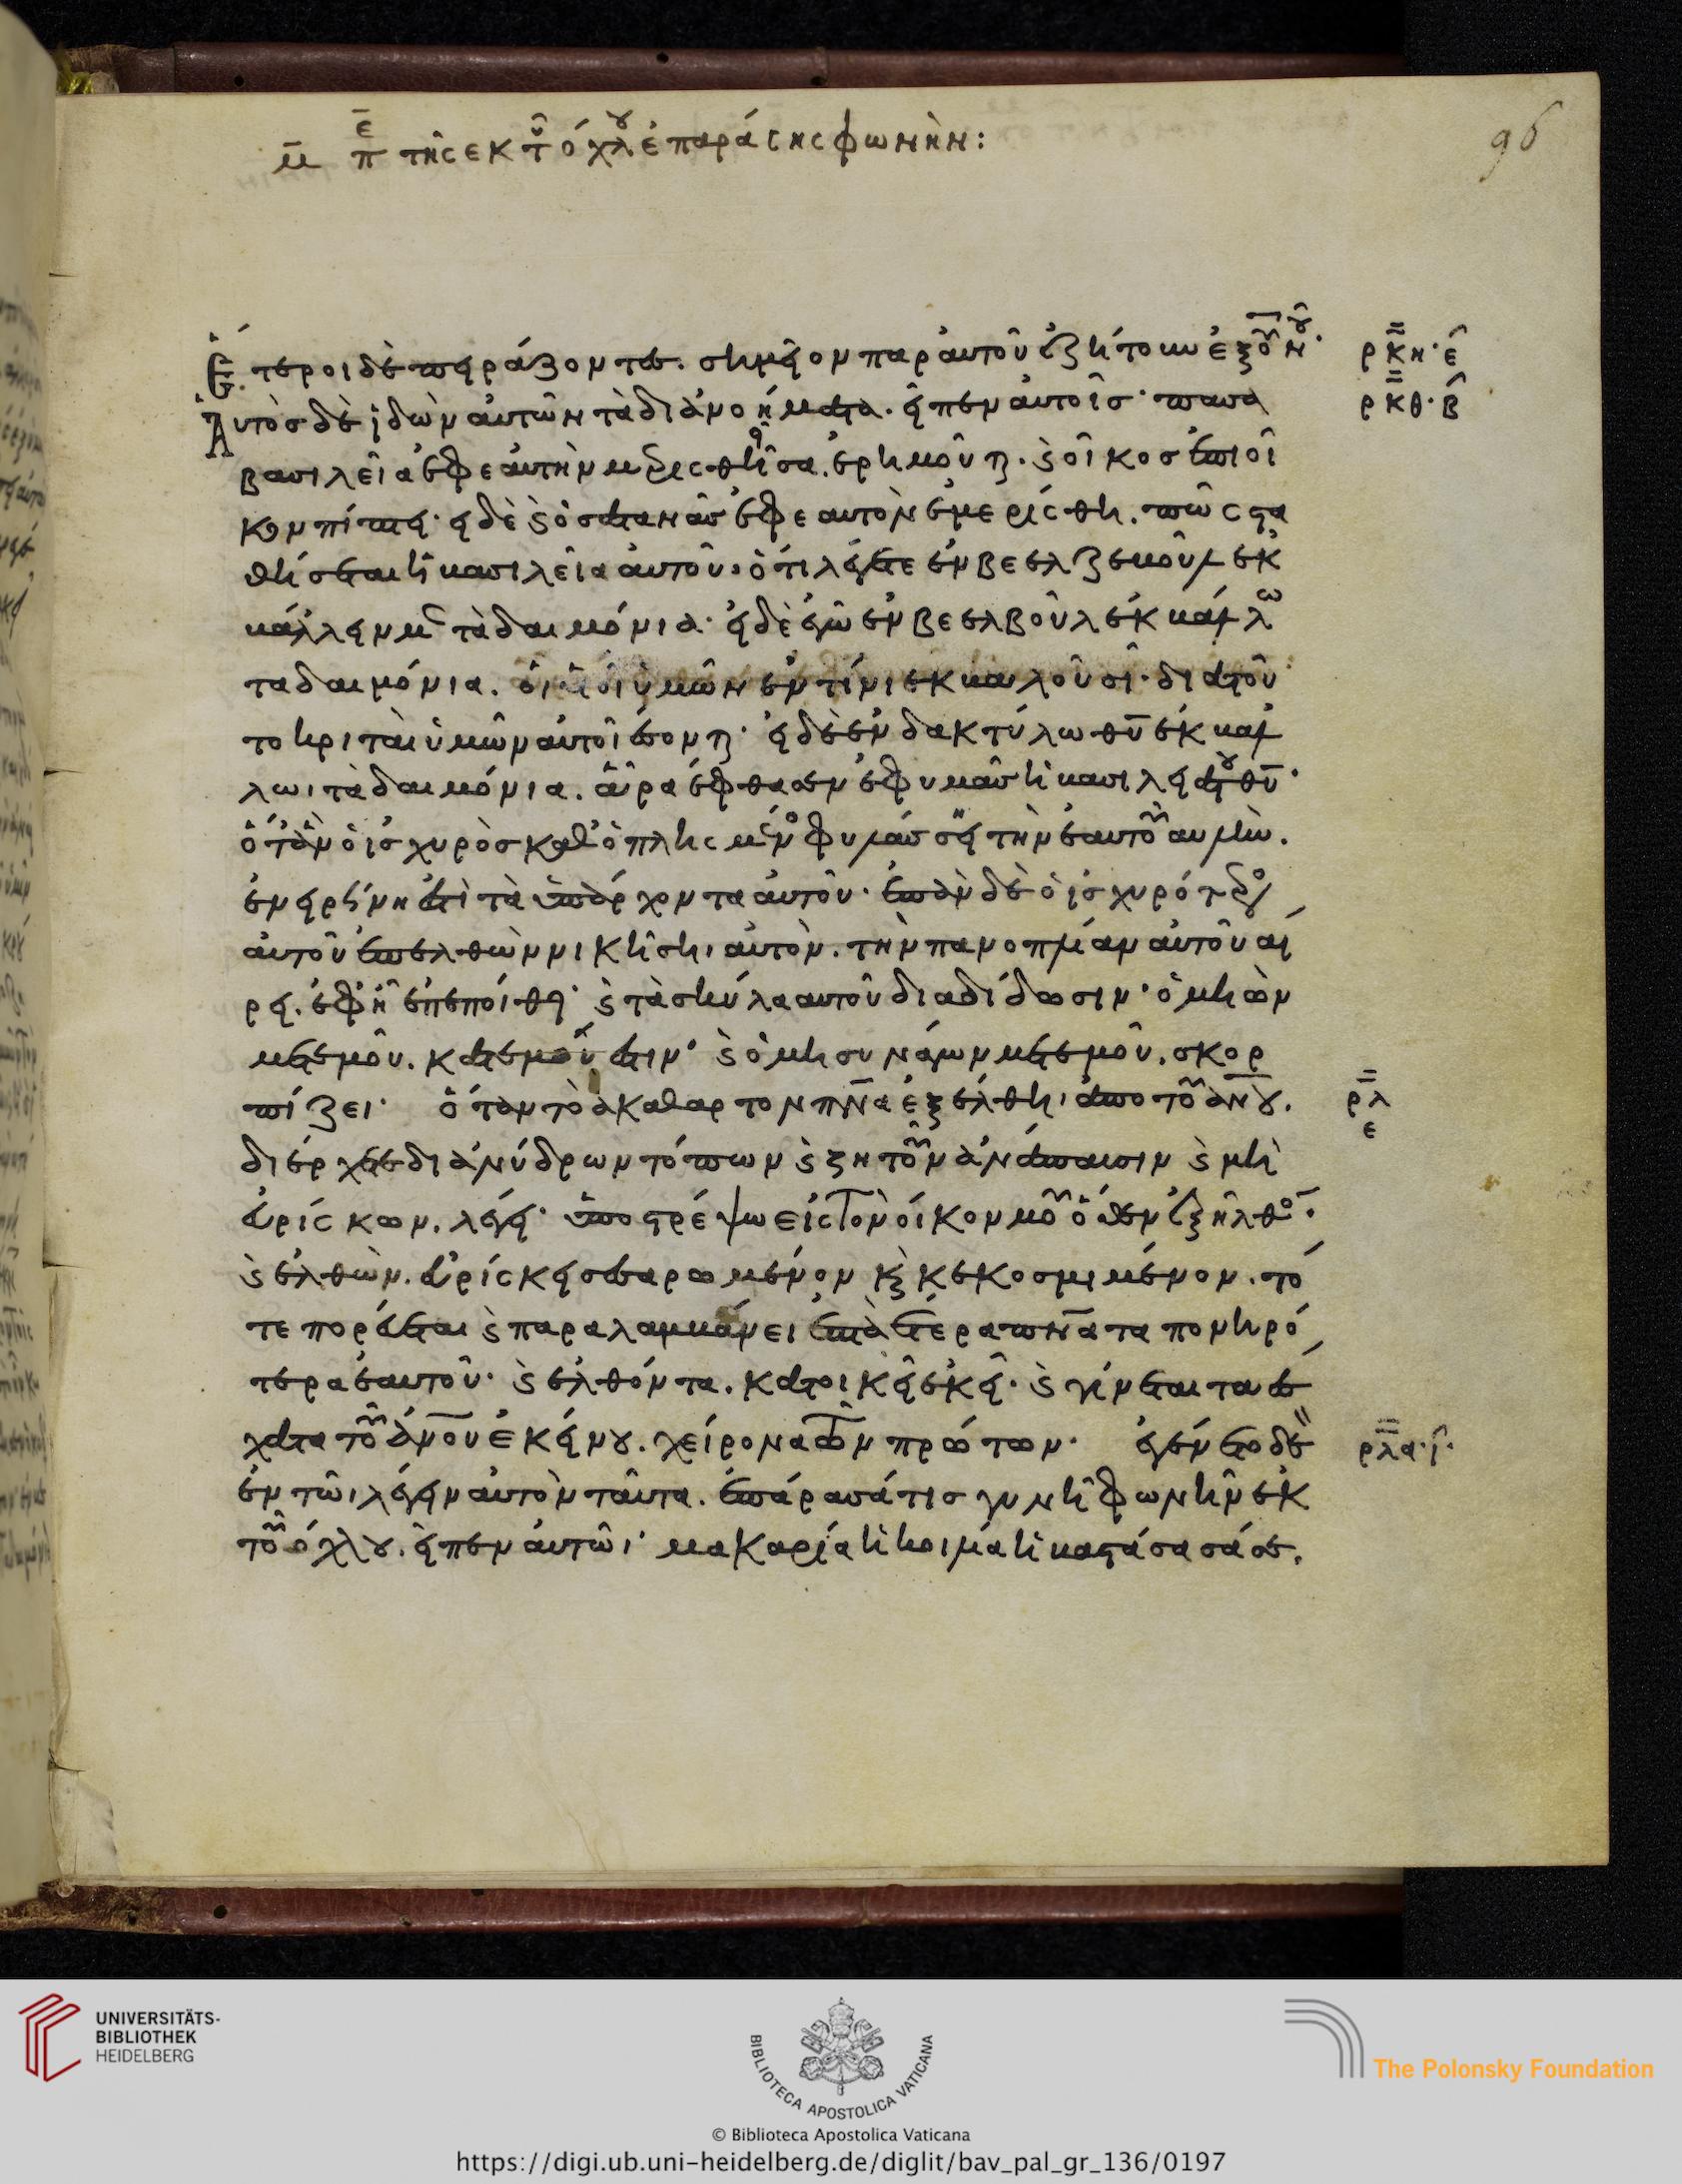 μ̄ π̄ε τῆς ἐκ τοῦ ὄχλου ἐπαράσης φωνὴν:
96
Ἕτεροι δὲ πειράζοντες. σημεῖον παρ αὐτοῦ ἐζήτουν ἐξ οὐνοῦ· ρκη·ε
Αὐτὸς δὲ ἰδὼν αὐτῶν τὰ διανοήματα. εἶπεν αὐτοῖς· πᾶσα ρκθ·β
βασιλεία ἐφ ἑαυτὴν μερισθεῖσα. ἐρημοῦται. καὶ οἶκος ἐπι οἶ
κον πίπτει· εἰ δὲ καὶ ὁ σατανᾶς ἐφ ἑαυτὸν ἐμερίσθη. πῶς στα
θήσεται ἡ βασιλεία αὐτοῦ· ὅτι λέγετε ἐν βεελζεβοὺλ ἐκ
βάλλειν με τὰ δαιμόνια· εἰ δὲ ἐγὼ ἐν βεελβοὺλ ἐκβάλλω
τα δαιμόνια. οἱ υἱοὶ ὑμῶν ἐν τίνι ἐκβαλοῦσι· διατοῦ
το κριταὶ ὑμῶν αὐτοὶ ἔσονται· εἰ δὲ ἐν δακτύλω θῦ ἐκβάλ
λωι τὰ δαιμόνια. ἄρα ἔφθασεν ἐφ υμᾶς ἡ βασιλεία τοῦ θῦ·
ὅταν ὁ ἰσχυρὸς καθοπλησμένος φυλάσση τὴν ἑαυτοῦ αυλὴν.
ἐν εἰρήνη ἐστὶ τὰ ὑπάρχοντα αὐτοῦ· ἐπὰν δὲ ὁ ἰσχυρότερος
αὐτοῦ ἐπελθὼν νικήση αὐτὸν. τὴν πανοπλίαν αὐτοῦ αι
ρει. ἐφ ἧ ἐπεποίθει· καὶ τὰ σκύλα αυτοῦ διαδίδωσιν· ὁ μὴ ὢν
μετ εμοῦ. κατ εμοῦ ἐστιν· καὶ ὁ μὴ συνάγων μετ εμοῦ. σκορ
πίζει· ὅταν τὸ ἀκαθαρτον πνᾱ ἐξέλθη ἀπο τοῦ ἀνοῦ. ρλ
ε
διέρχεται δι ἀνύδρων τόπων καὶ ζητοῦν ἀνάπαυσιν καὶ μὴ
εὑρίσκων. λέγει· ὑποστρέψω εἰς τὸν οἶκον μοῦ ὅθεν ἐξῆλθον·
καὶ ἐλθὼν. εὑρίσκει σεσαρωμένον καὶ κεκοσμιμένον. τό
τε πορεύεται καὶ παραλαμβάνει ἑπτὰ ἕτερα πνᾱτα πονηρό
τερα ἑαυτοῦ· καὶ ἐλθόντα. κατοικεῖ ἐκεῖ· καὶ γίνεται τα ἐσ
χατα τοῦ ἀνου ἐκείνου. χείρονα τῶν πρώτων· ἐγένετο δὲ ρλα·ι·
ἐν τῶι λέγειν αὐτὸν ταῦτα. ἐπάρασά τις γυνὴ φωνὴν ἐκ
τοῦ ὄχλου. εἶπεν αὐτῶι· μακαρία ἡ κοιλία ἡ βαστάσασά σε.
UNIVERSITÄTS-
BIBLIOTHEK
HEIDELBERG
BIBLIOTECA APOSTOLICA VATICANA
© Biblioteca Apostolica Vaticana
The Polonsky Foundation
https://digi.ub.uni-heidelberg.de/diglit/bav_pal_gr_136/0197